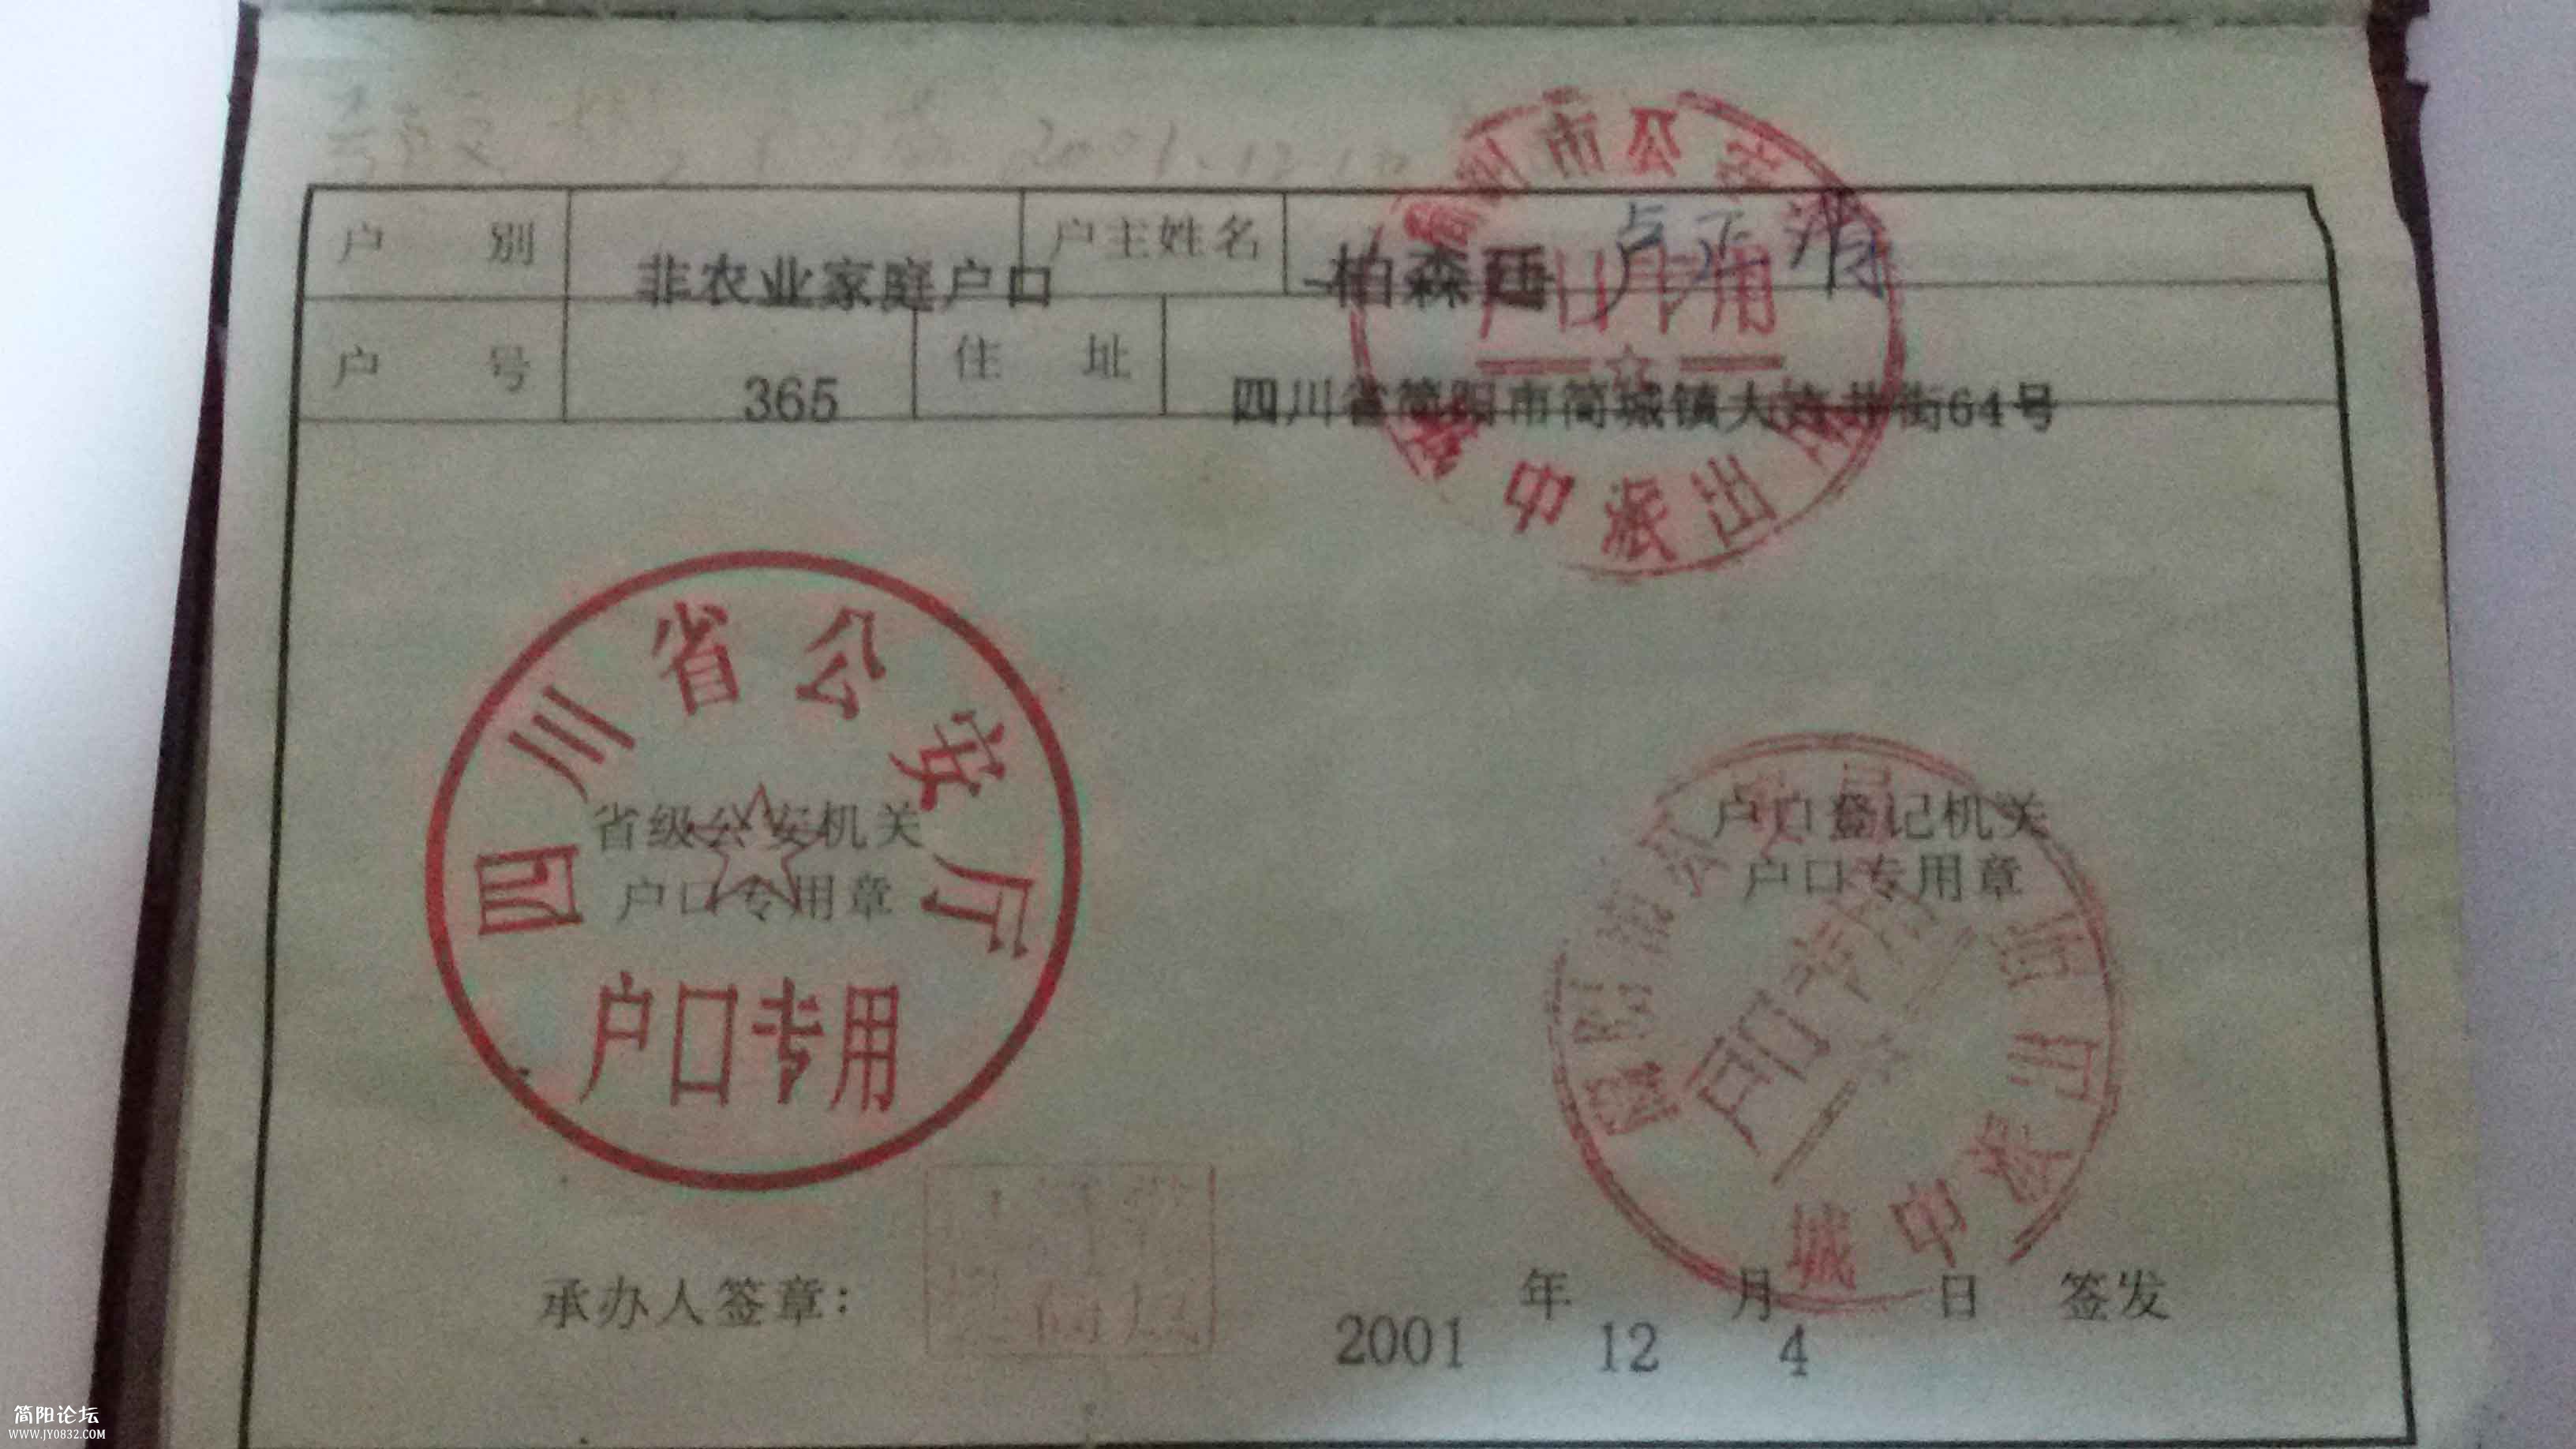 户 别 非农业家庭户口 户主姓名 柏森廷 卢正清
户 号 365 住 址 四川省简阳市简城镇大林井街64号
简阳市公安局
户口专用
城中派出所
四川省公安厅
省级公安机关
户口专用章
户口专用
户口登记机关
户口专用章
简阳市公安局
户口专用
城中派出所
承办人签章：
2001 年 12 月 4 日 签发
简阳论坛
WWW.JY0832.COM